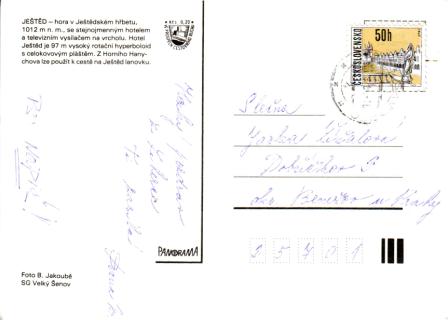 JEŠTĚD – hora v Ještědském hřbetu,
1012 m n. m., se stejnojmenným hotelem
a televizním vysílačem na vrcholu. Hotel
Ještěd je 97 m vysoký rotační hyperboloid
s celokovovým pláštěm. Z Horního Hany-
chova lze použít k cestě na Ještěd lanovku.
Kčs 0,20
50h
ČESKOSLOVENSKO
Malý pozdrav
z Liberce
Ti posílá
PS: NAPIŠ!
Slečna
Benešov u Prahy
25701
PANORAMA
Foto B. Jakoubě
SG Velký Šenov